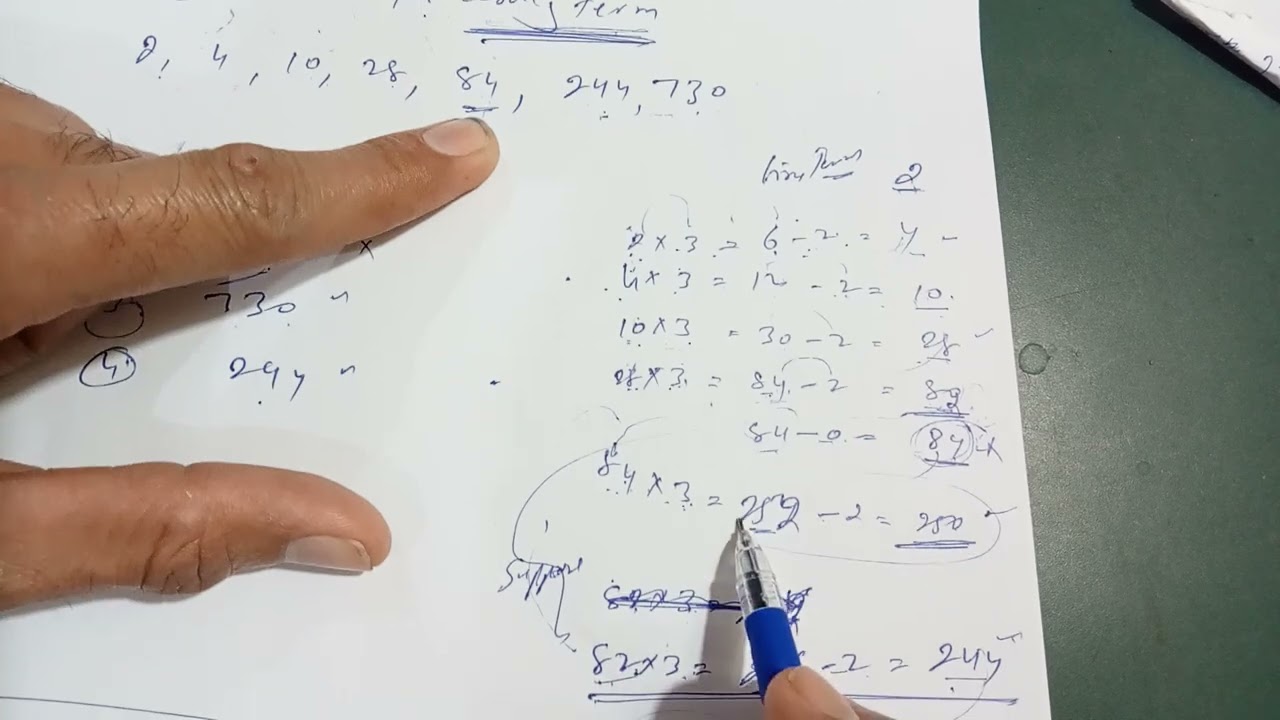 term
2, 4, 10, 28, 84, 244, 730
Term 2
2 × 3 = 6 - 2 = 4 -
4 × 3 = 12 - 2 = 10
10 × 3 = 30 - 2 = 28
28 × 3 = 84 - 2 = 82
84 - 0 = 84 ×
84 × 3 = 252 - 2 = 250
Suppose
82 × 3 = - 2 = 244
×
730
4 244